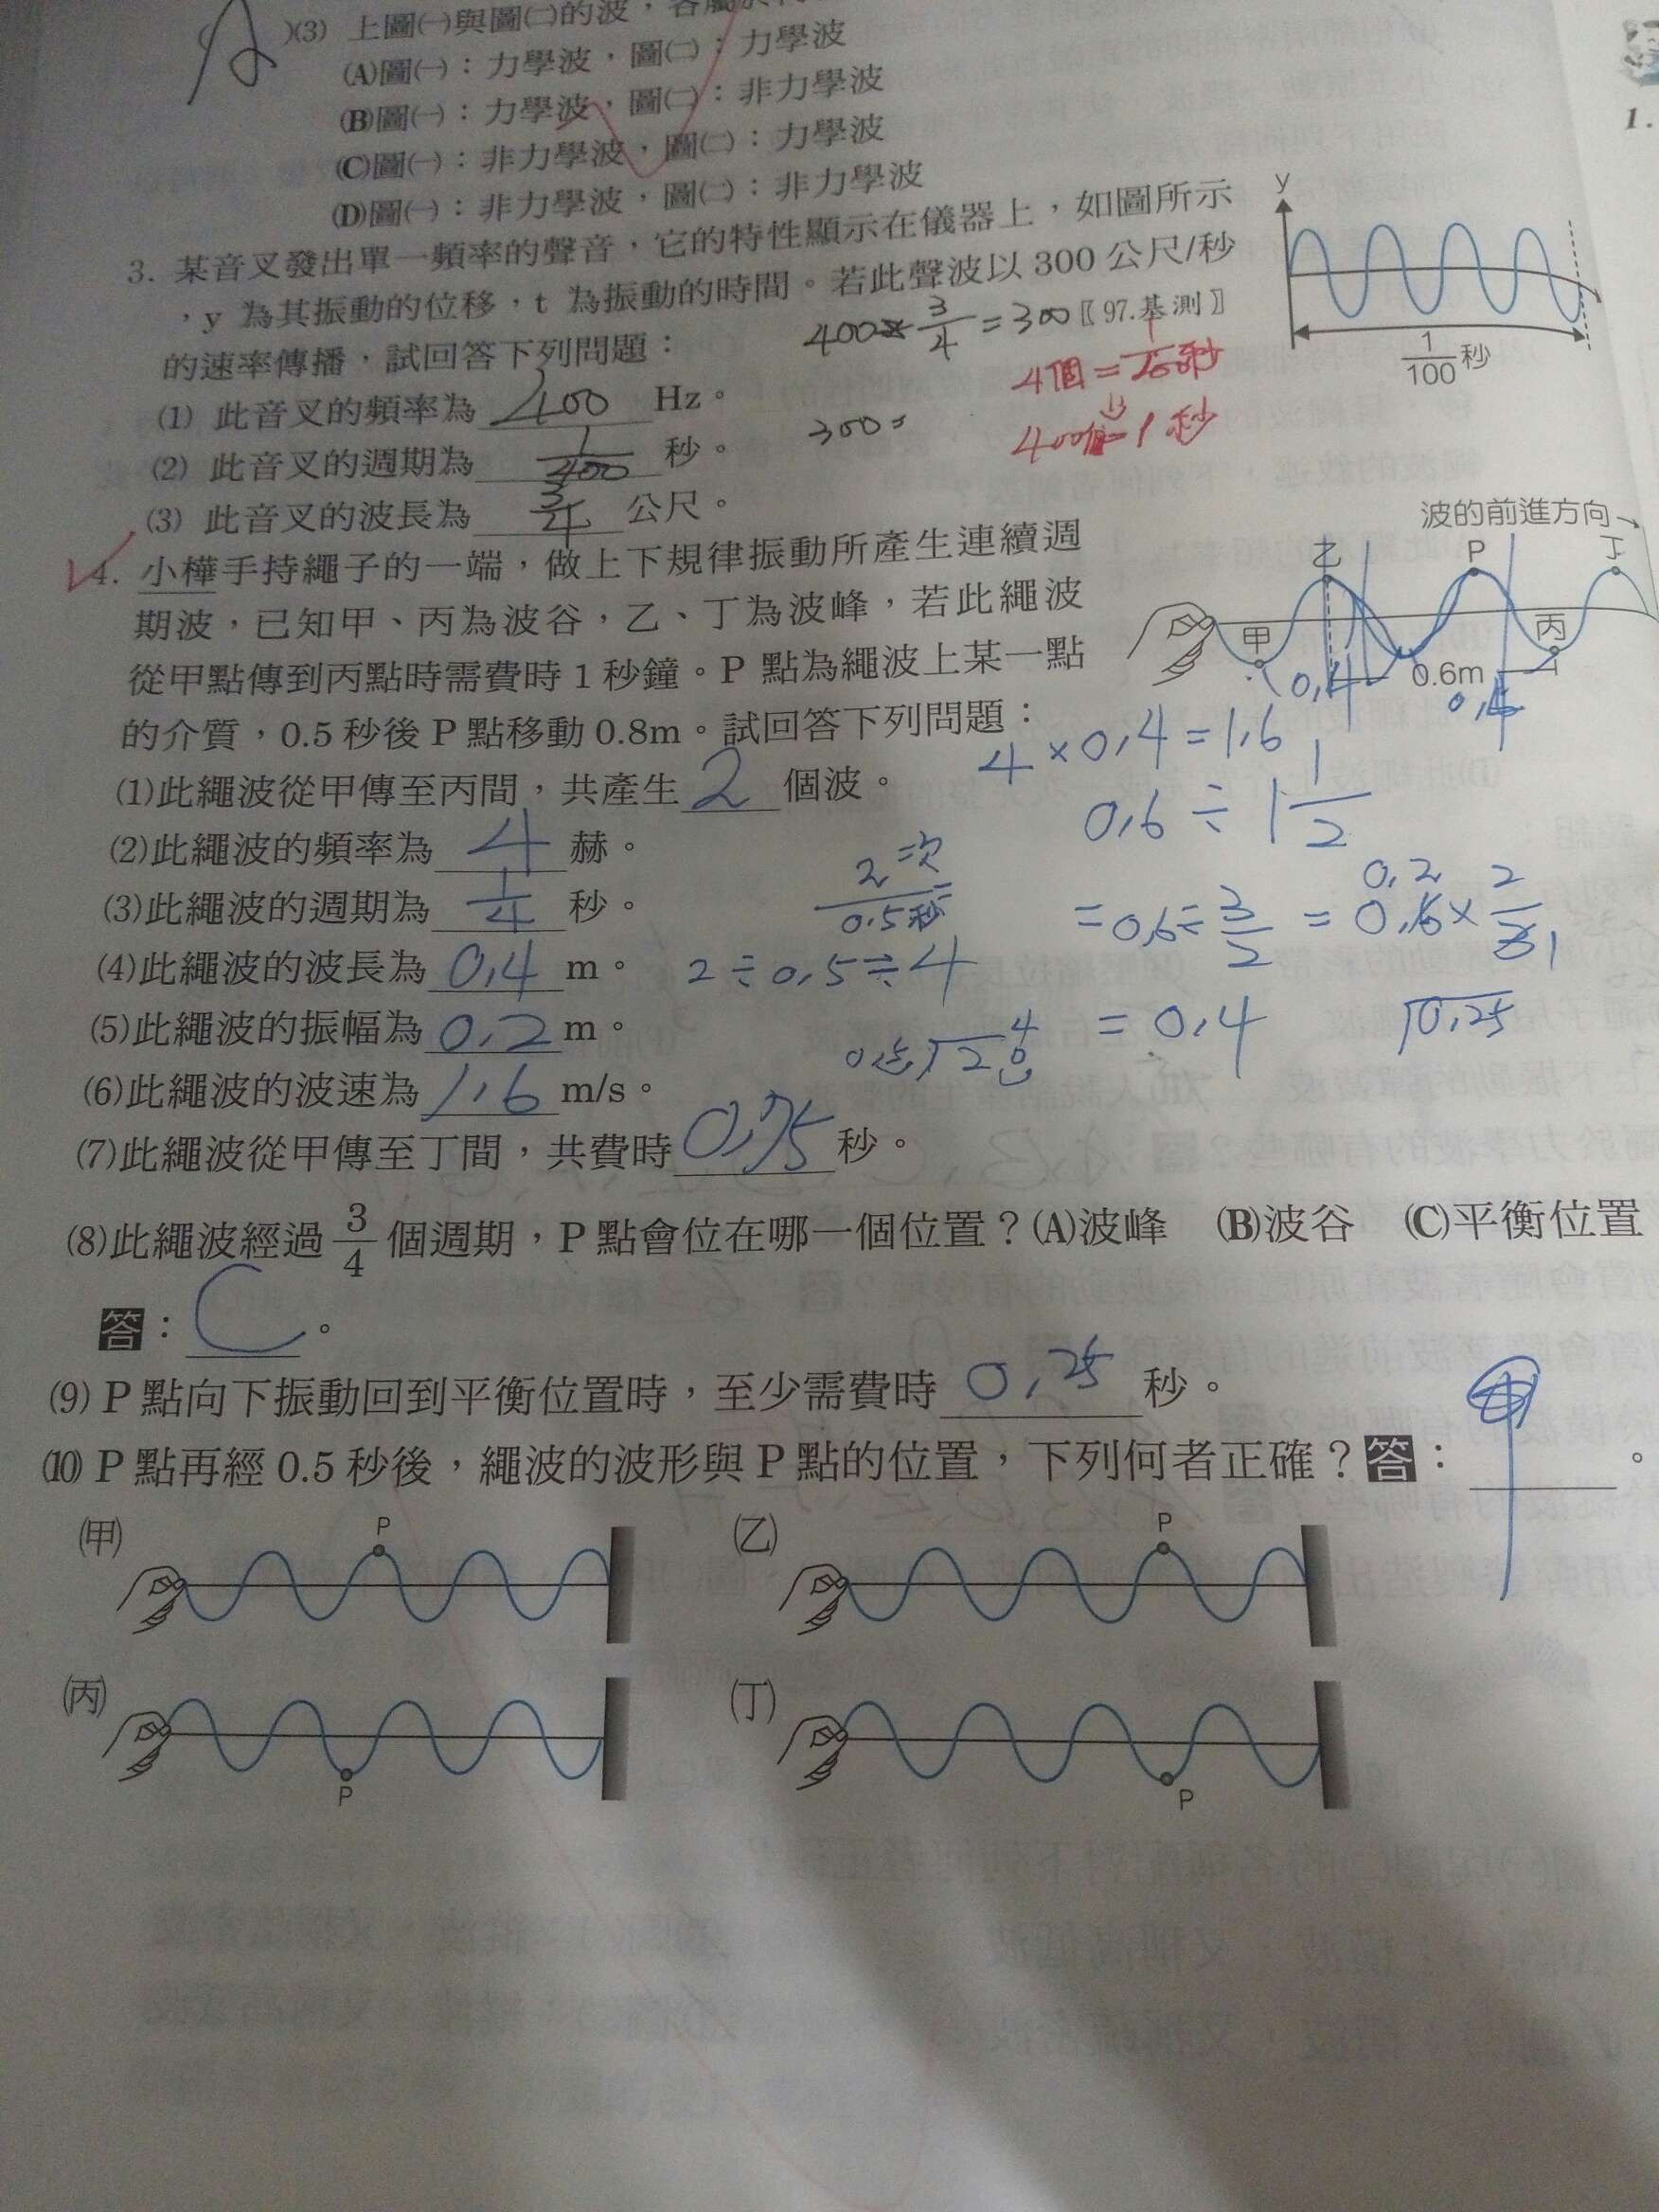 A
)(3) 上圖㈠與圖㈡的波，各屬於
(A)圖㈠：力學波，圖㈡：力學波
(B)圖㈠：力學波，圖㈡：非力學波
(C)圖㈠：非力學波，圖㈡：力學波
(D)圖㈠：非力學波，圖㈡：非力學波
1.
3. 某音叉發出單一頻率的聲音，它的特性顯示在儀器上，如圖所示
，y 為其振動的位移，t 為振動的時間。若此聲波以 300 公尺/秒
的速率傳播，試回答下列問題：
〖97.基測〗
400×3/4=300
y
1/100 秒
4個=1/100秒
400個=1秒
300=
(1) 此音叉的頻率為 400 Hz。
(2) 此音叉的週期為 1/400 秒。
(3) 此音叉的波長為 3/4 公尺。
4. 小樺手持繩子的一端，做上下規律振動所產生連續週
期波，已知甲、丙為波谷，乙、丁為波峰，若此繩波
從甲點傳到丙點時需費時 1 秒鐘。P 點為繩波上某一點
的介質，0.5 秒後 P 點移動 0.8m。試回答下列問題：
波的前進方向→
乙 P 丁
甲 丙
0.6m
0.4
4×0.4=1.6
0.6÷1 1/2
=0.6÷3/2=0.6×2/3
0.2
=0.4
0.25
(1)此繩波從甲傳至丙間，共產生 2 個波。
(2)此繩波的頻率為 4 赫。
(3)此繩波的週期為 1/4 秒。
2次/0.5秒
(4)此繩波的波長為 0.4 m。
2÷0.5=4
(5)此繩波的振幅為 0.2 m。
(6)此繩波的波速為 1.6 m/s。
(7)此繩波從甲傳至丁間，共費時 0.75 秒。
(8)此繩波經過 3/4 個週期，P 點會位在哪一個位置？(A)波峰 (B)波谷 (C)平衡位置
答：C。
(9) P 點向下振動回到平衡位置時，至少需費時 0.25 秒。
(10) P 點再經 0.5 秒後，繩波的波形與 P 點的位置，下列何者正確？答：甲。
(甲) P
(乙) P
(丙) P
(丁) P